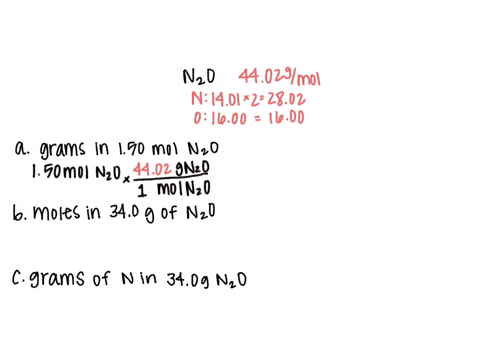 N₂O 44.02g/mol
N: 14.01 × 2 = 28.02
O: 16.00 = 16.00
a. grams in 1.50 mol N₂O
1.50 mol N₂O × 44.02 g N₂O
1 mol N₂O
b. moles in 34.0 g of N₂O
c. grams of N in 34.0g N₂O